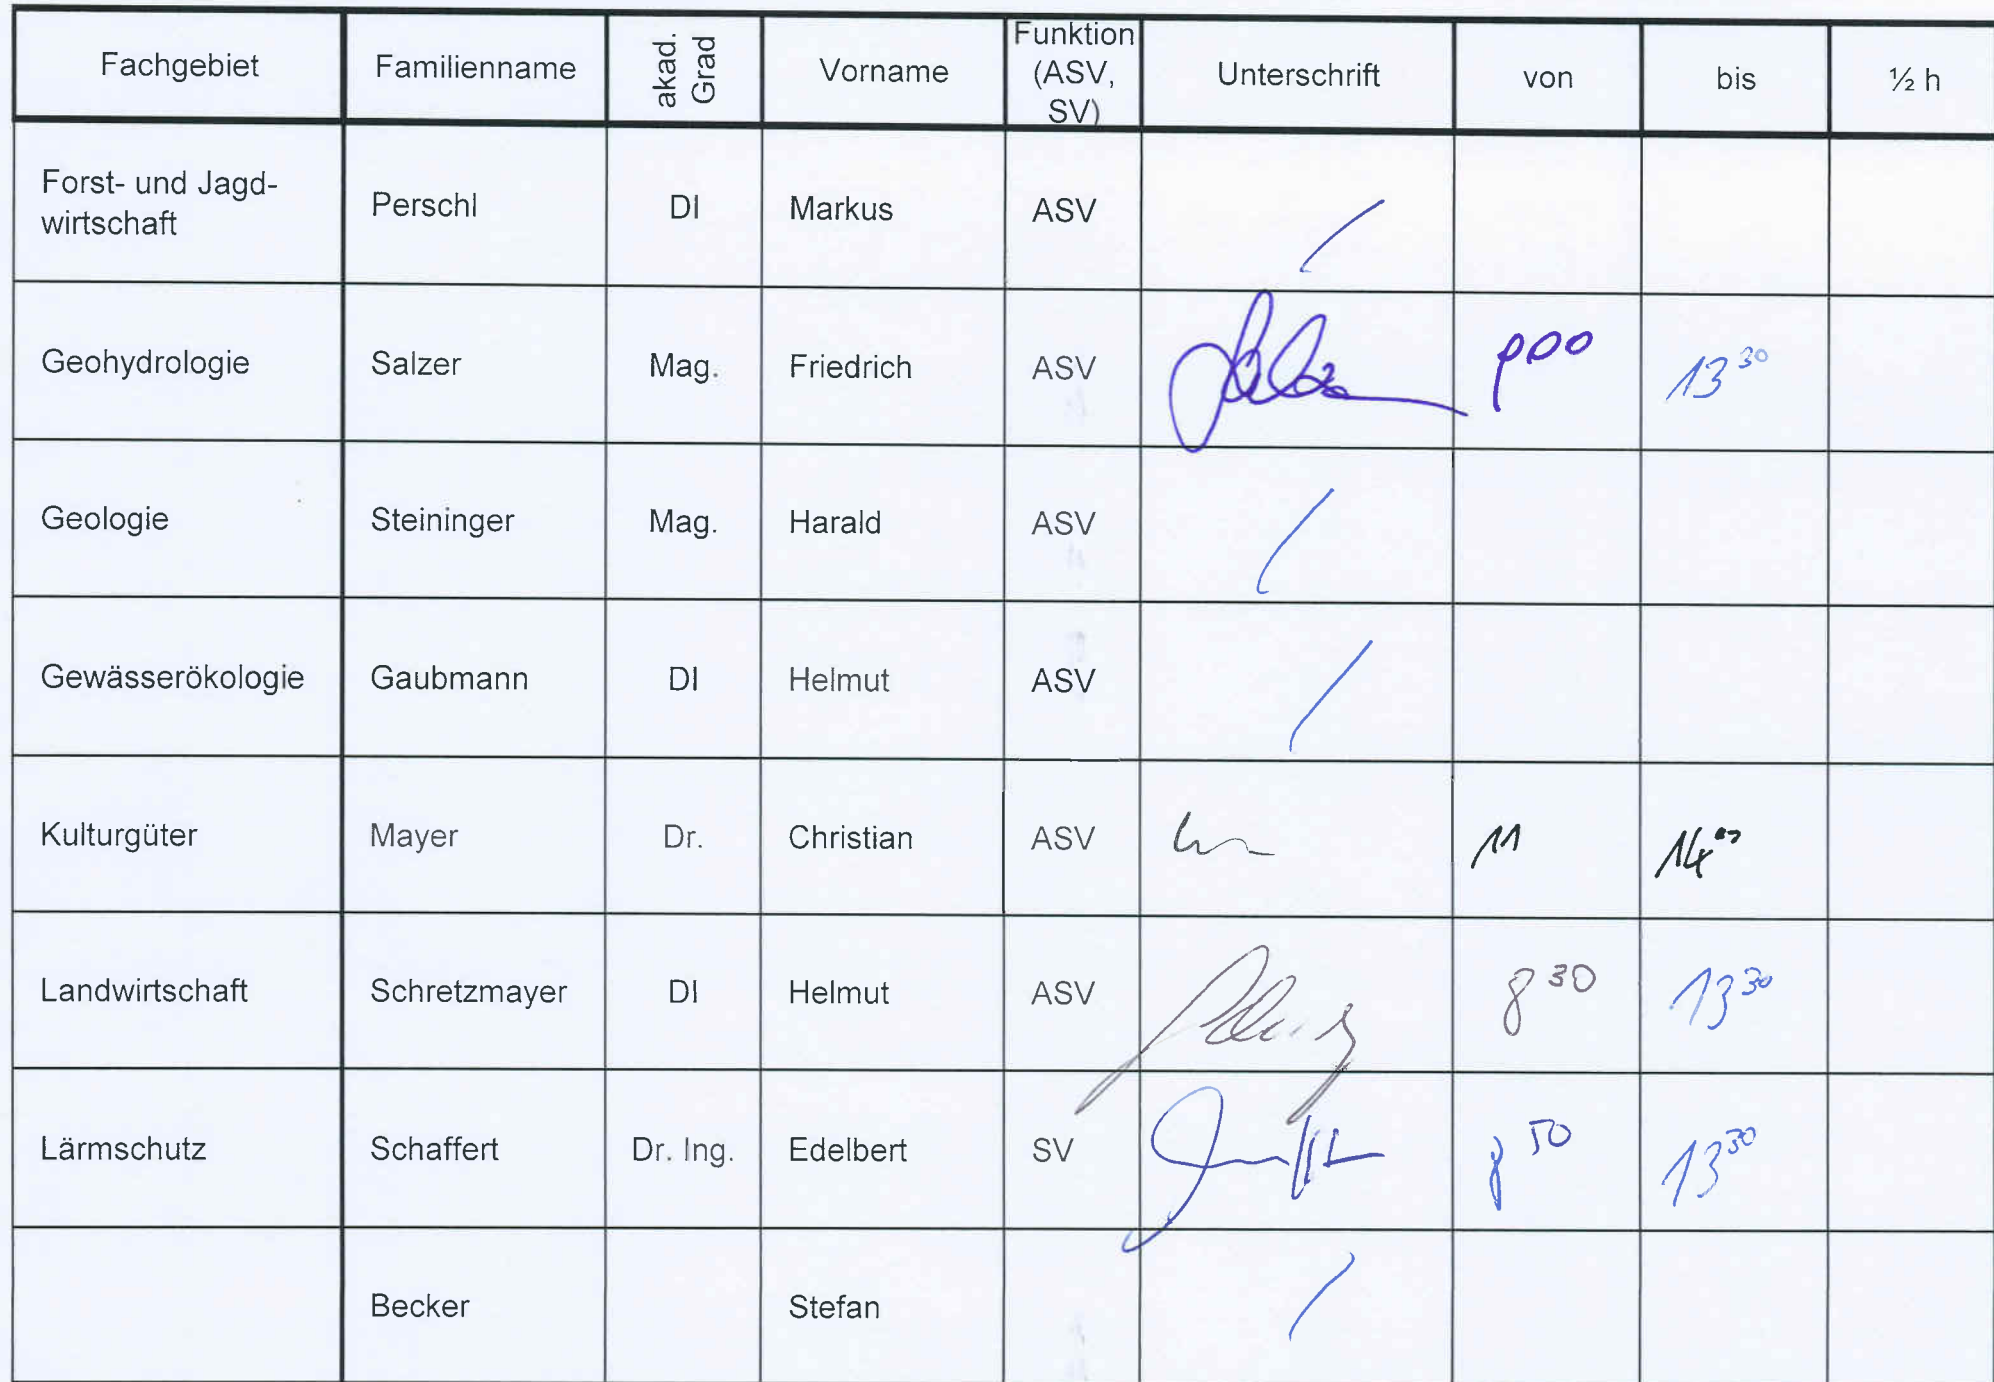 Fachgebiet Familienname akad. Grad Vorname Funktion (ASV, SV) Unterschrift von bis ½ h
Forst- und Jagd-
wirtschaft Perschl DI Markus ASV /
Geohydrologie Salzer Mag. Friedrich ASV 13 30
Geologie Steininger Mag. Harald ASV /
Gewässerökologie Gaubmann DI Helmut ASV /
Kulturgüter Mayer Dr. Christian ASV 11 14 00
Landwirtschaft Schretzmayer DI Helmut ASV 8 30 13 30
Lärmschutz Schaffert Dr. Ing. Edelbert SV 8 50 13 30
Becker Stefan /